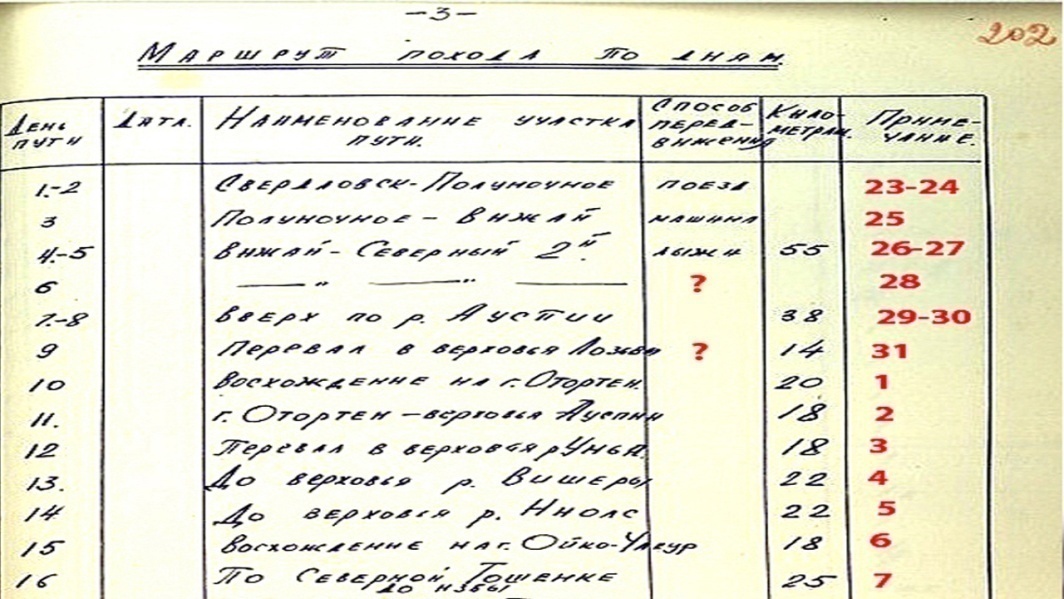 —3—
202
Маршрут похода по дням.
День пути Дата. Наименование участка пути. Способ передвижения Километраж. Примечание.
1.-2 Свердловск-Полуночное поезд 23-24
3 Полуночное - Вижай машина 25
4.-5 Вижай - Северный 2й. лыжи 55 26-27
6 —— " —— " —— ? 28
7.-8 Вверх по р. Аустии 38 29-30
9 Перевал в верховья Лозьвы ? 14 31
10 восхождение на г. Отортен. 20 1
11. г. Отортен - верховья Ауспии 18 2
12 Перевал в верховья р Унья. 18 3
13. До верховья р. Вишеры 22 4
14 До верховья р. Ниолс 22 5
15 Восхождение на г. Ойко-Чакур 18 6
16 По Северной Тошемке до избы 25 7